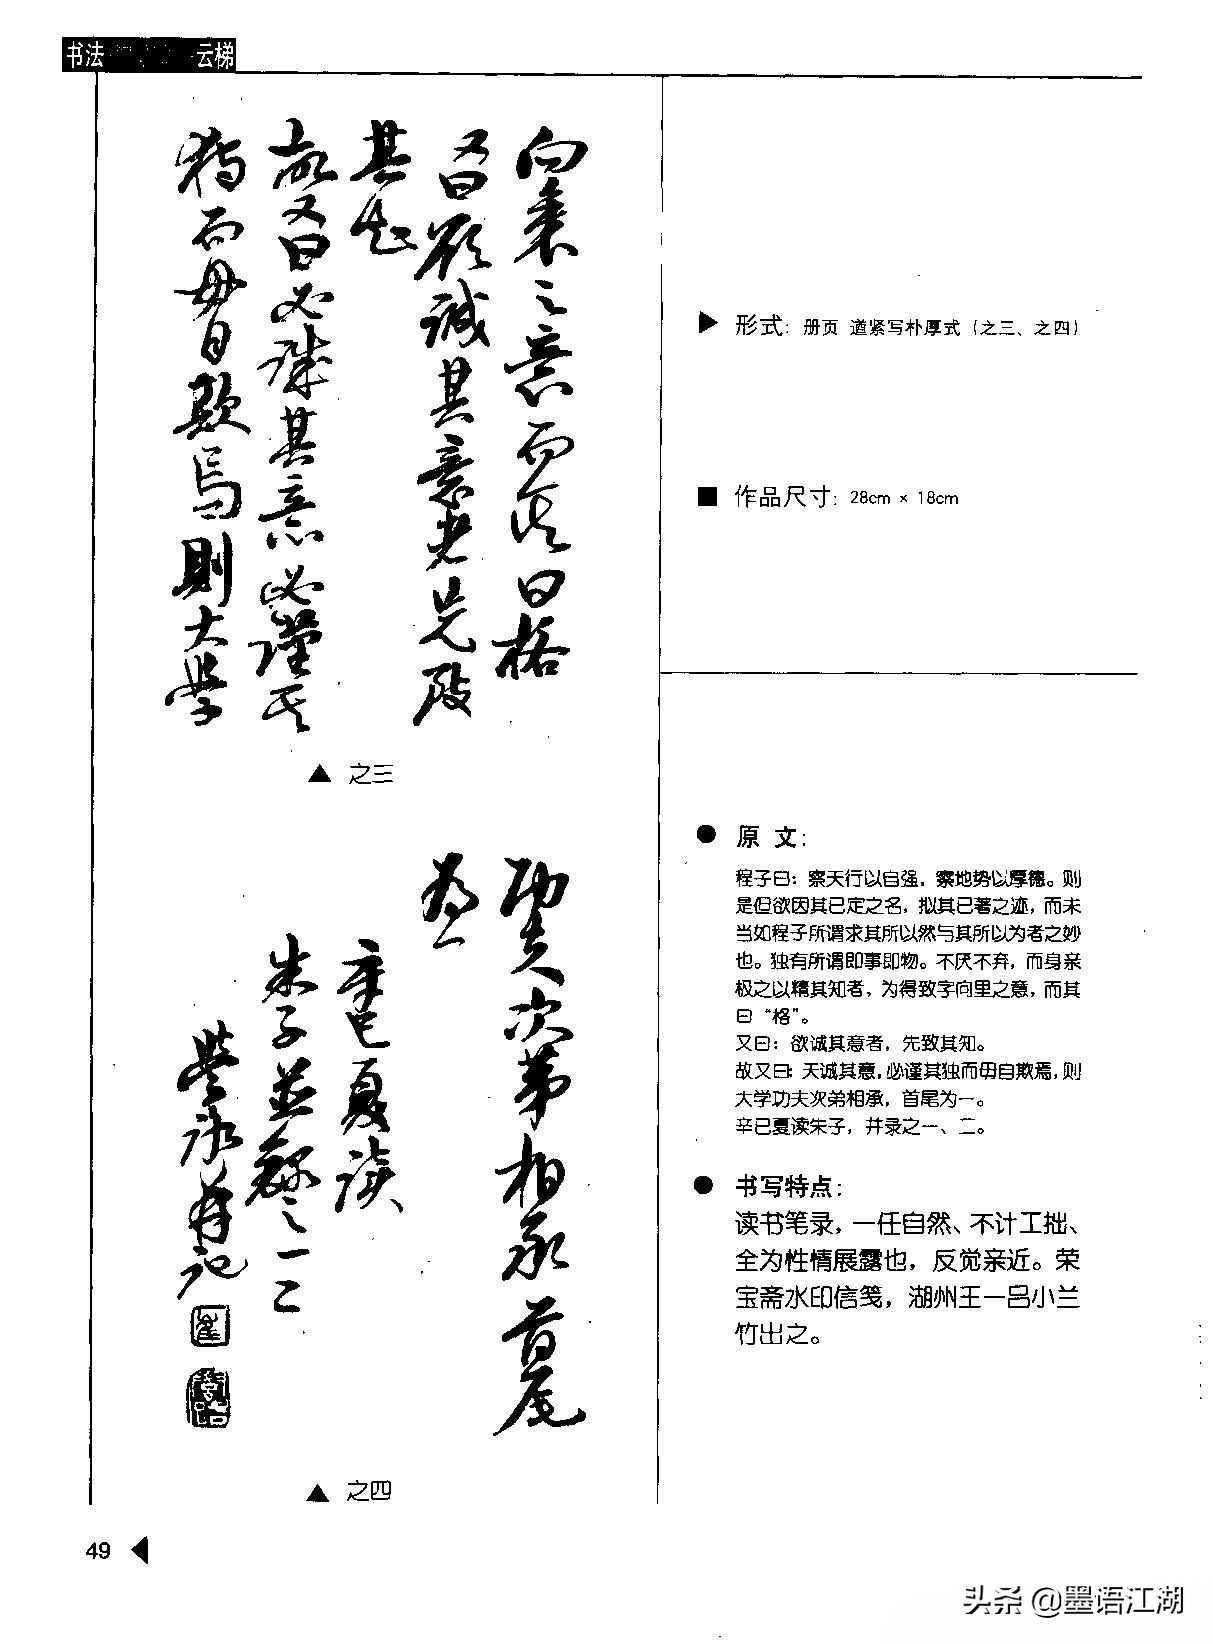 书法 云梯
向里之意而其曰格
又曰欲诚其意者先致
其知
故又曰必诚其意必谨其
独而毋自欺焉则大学
▲ 之三
功夫次第相承首尾
为一
辛巳夏读
朱子並录之一二
▲ 之四
▶ 形式: 册页 遒紧写朴厚式 (之三、之四)
■ 作品尺寸: 28cm × 18cm
● 原 文:
程子曰: 察天行以自强, 察地势以厚德。则
是但欲因其已定之名, 拟其已著之迹, 而未
当如程子所谓求其所以然与其所以为者之妙
也。独有所谓即事即物。不厌不弃, 而身亲
极之以精其知者, 为得致字向里之意, 而其
曰 “格”。
又曰: 欲诚其意者, 先致其知。
故又曰: 天诚其意, 必谨其独而毋自欺焉, 则
大学功夫次弟相承, 首尾为一。
辛巳夏读朱子, 并录之一、二。
● 书写特点:
读书笔录, 一任自然、不计工拙、
全为性情展露也, 反觉亲近。荣
宝斋水印信笺, 湖州王一品小兰
竹出之。
49 ◀
头条 @墨语江湖